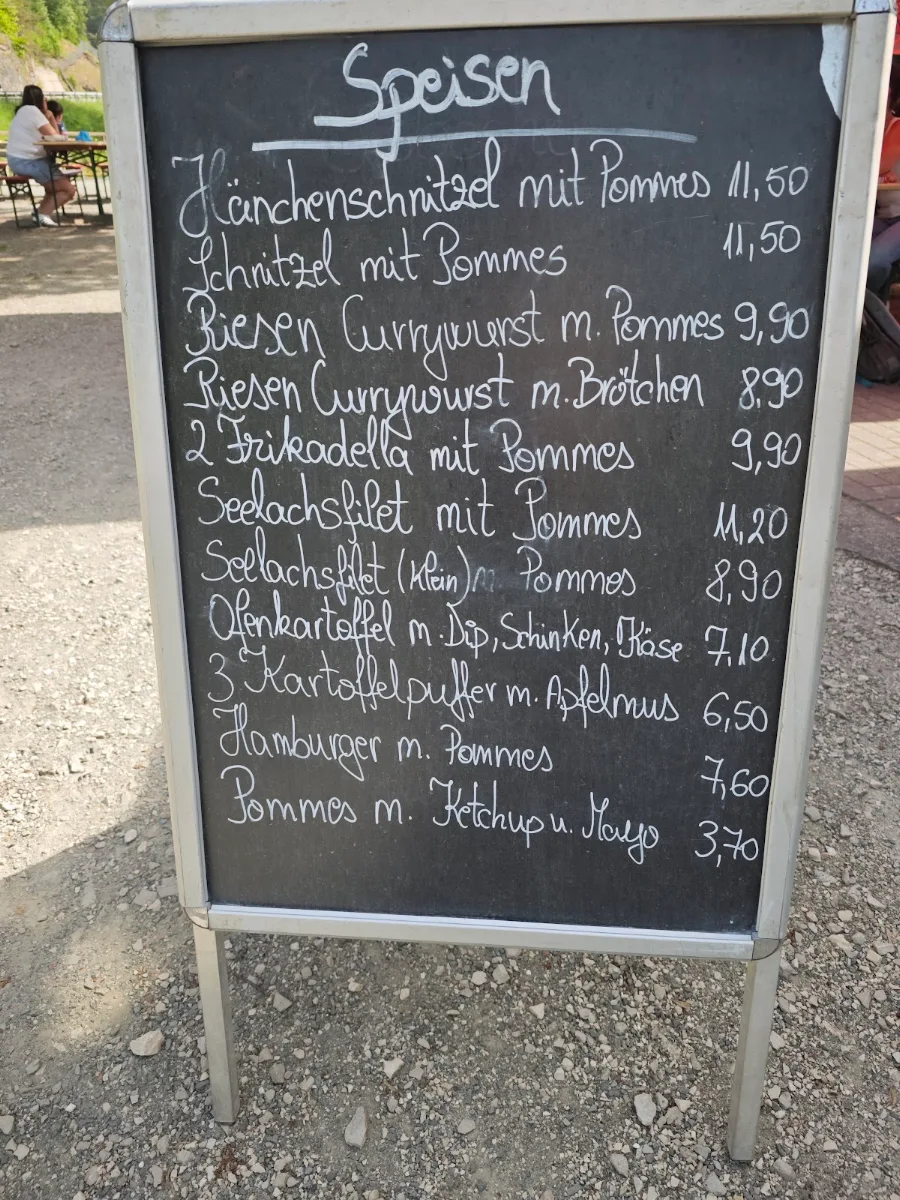 Speisen
Hänchenschnitzel mit Pommes 11,50
Schnitzel mit Pommes 11,50
Riesen Currywurst m. Pommes 9,90
Riesen Currywurst m. Brötchen 8,90
2 Frikadella mit Pommes 9,90
Seelachsfilet mit Pommes 11,20
Seelachsfilet (Klein) m. Pommes 8,90
Ofenkartoffel m. Dip, Schinken, Käse 7,10
3 Kartoffelpuffer m. Apfelmus 6,50
Hamburger m. Pommes 7,60
Pommes m. Ketchup u. Mayo 3,70